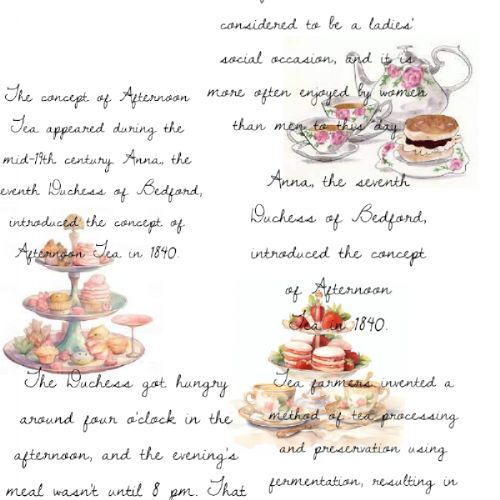 The concept of Afternoon
Tea appeared during the
mid-19th century. Anna, the
eventh Duchess of Bedford,
introduced the concept of
Afternoon Tea in 1840.
The Duchess got hungry
around four o'clock in the
afternoon, and the evening's
meal wasn't until 8 pm. That
considered to be a ladies'
social occasion, and it is
more often enjoyed by women
than men to this day
Anna, the seventh
Duchess of Bedford,
introduced the concept
of Afternoon
Tea in 1840.
Tea farmers invented a
method of tea processing
and preservation using
fermentation, resulting in